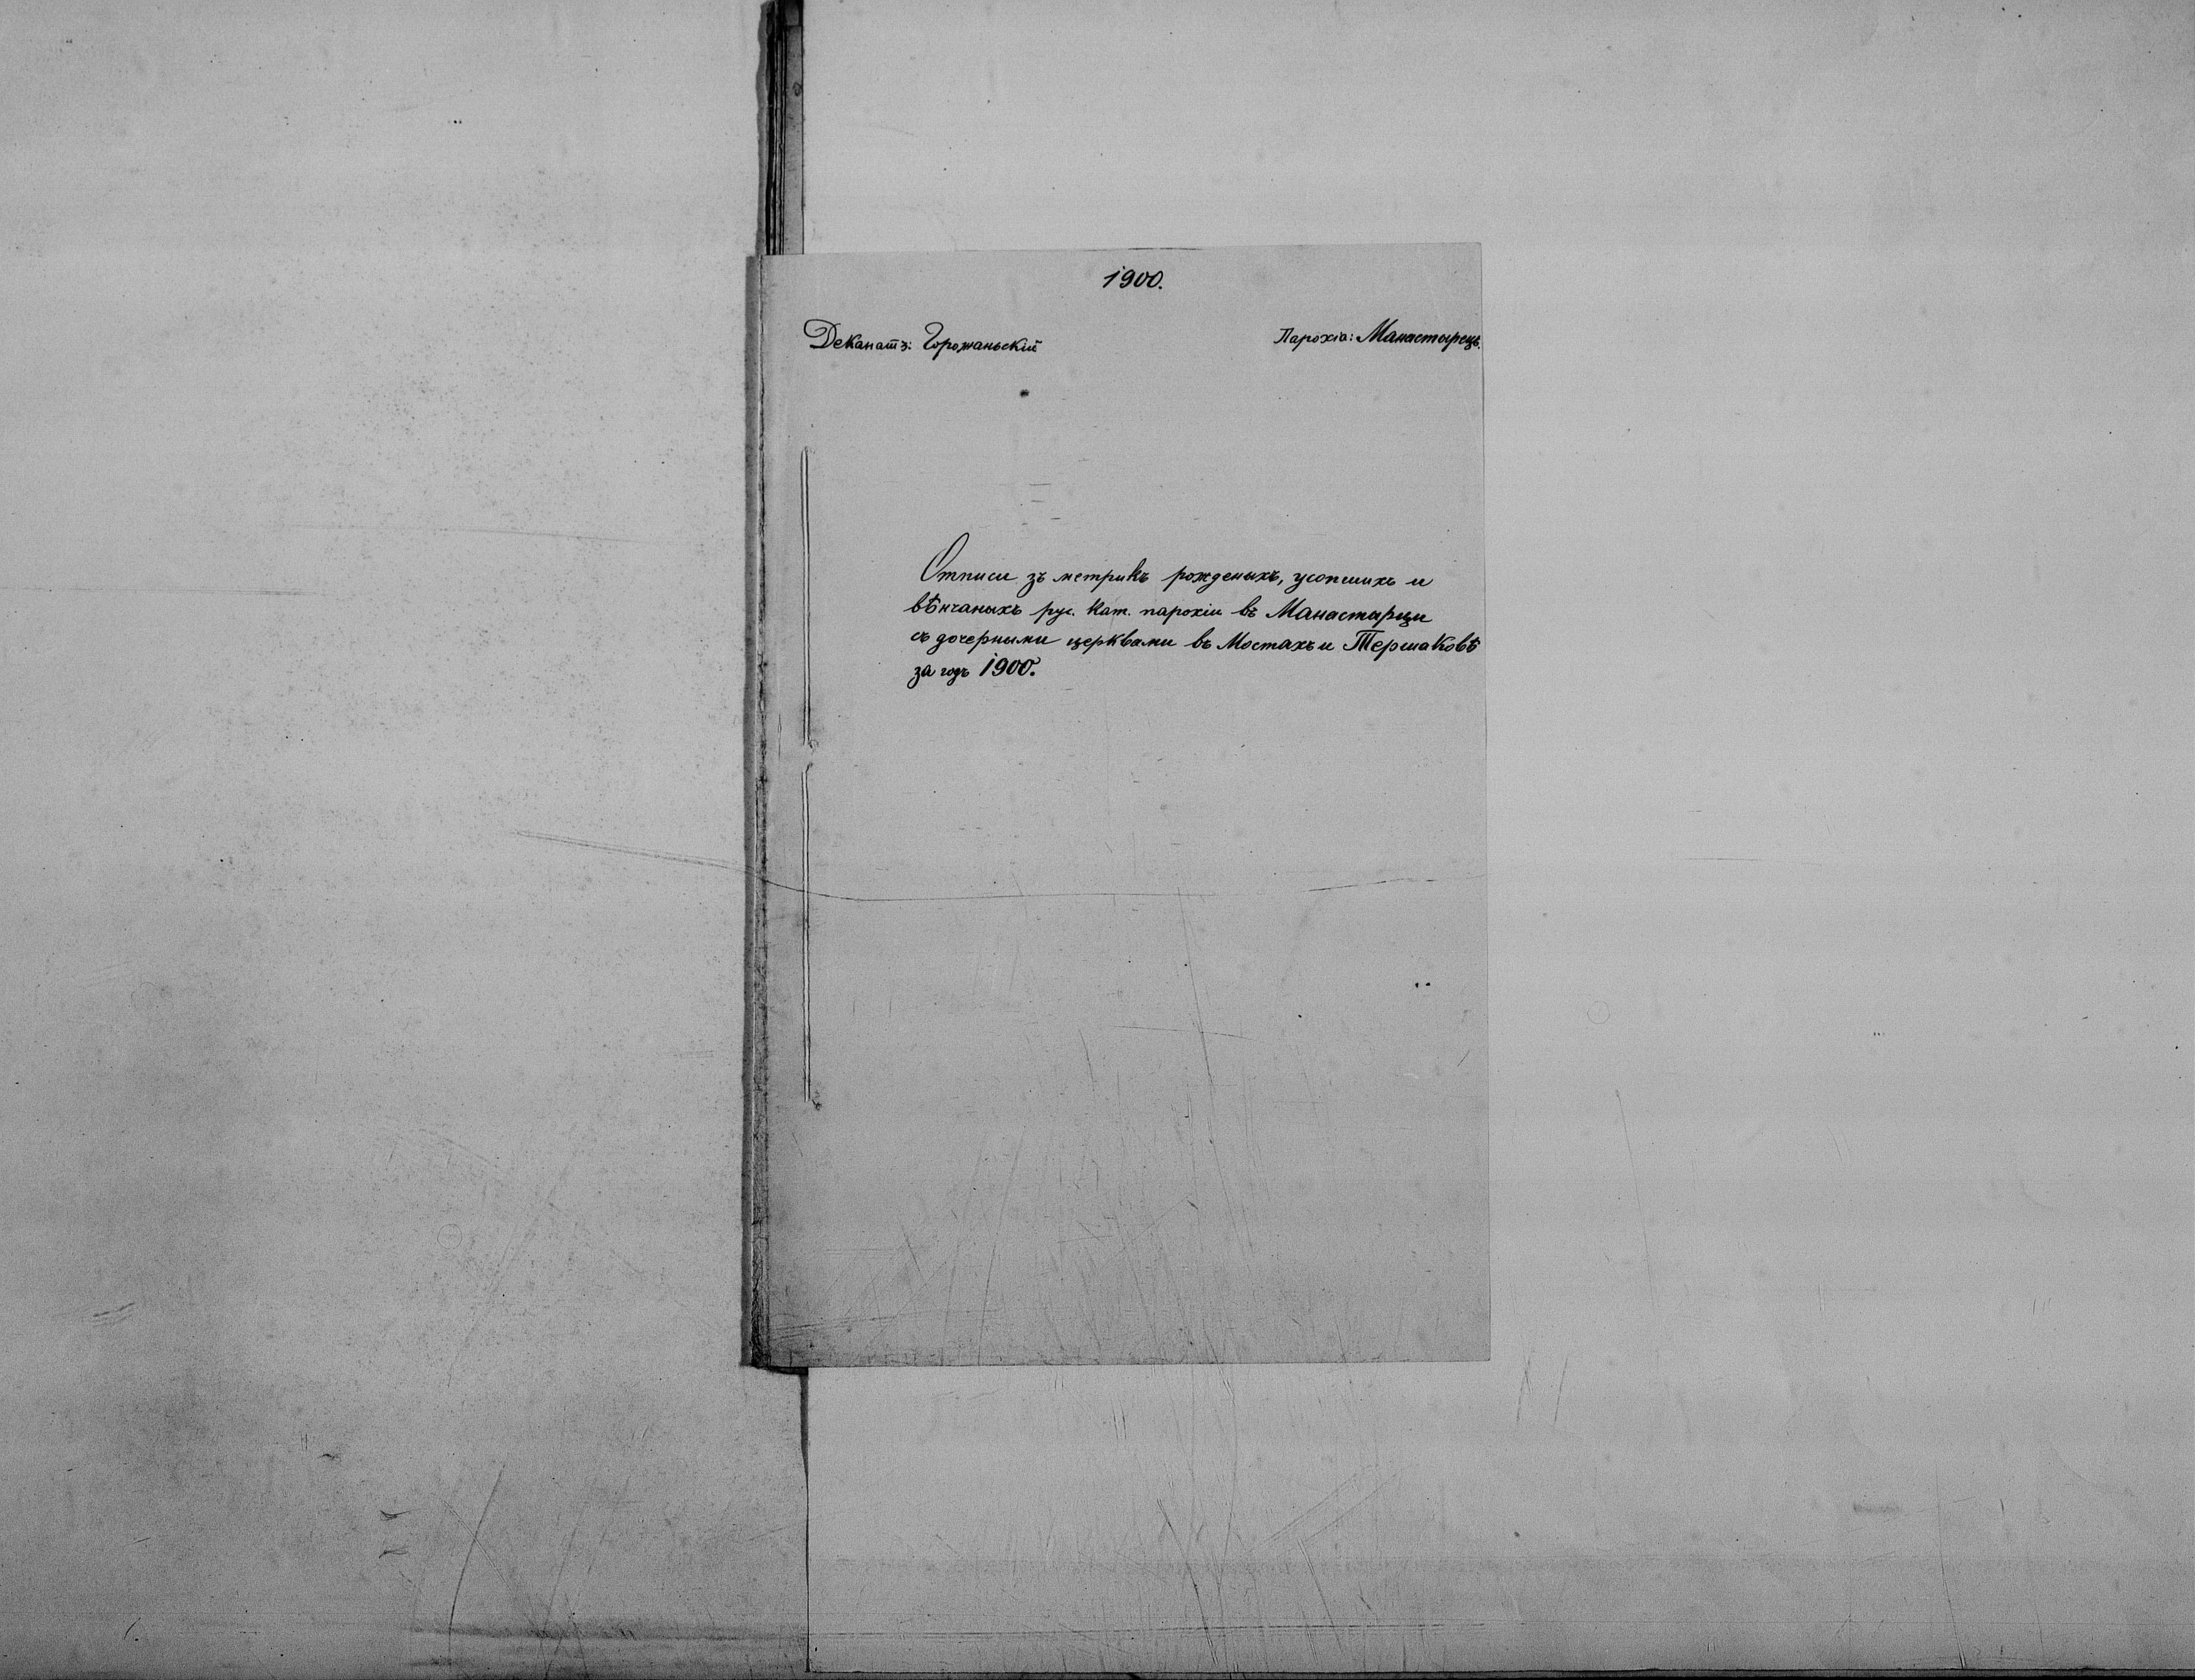 1900.
Деканатъ: Горожаньскій
Парохіа: Манастырець.
Отписи зъ метрикъ рожденыхъ, усопшихъ и
вѣнчаныхъ рус. кат. парохіи въ Манастырци
съ дочерными церквами въ Мостахъ и Тершаковѣ
за годъ 1900.